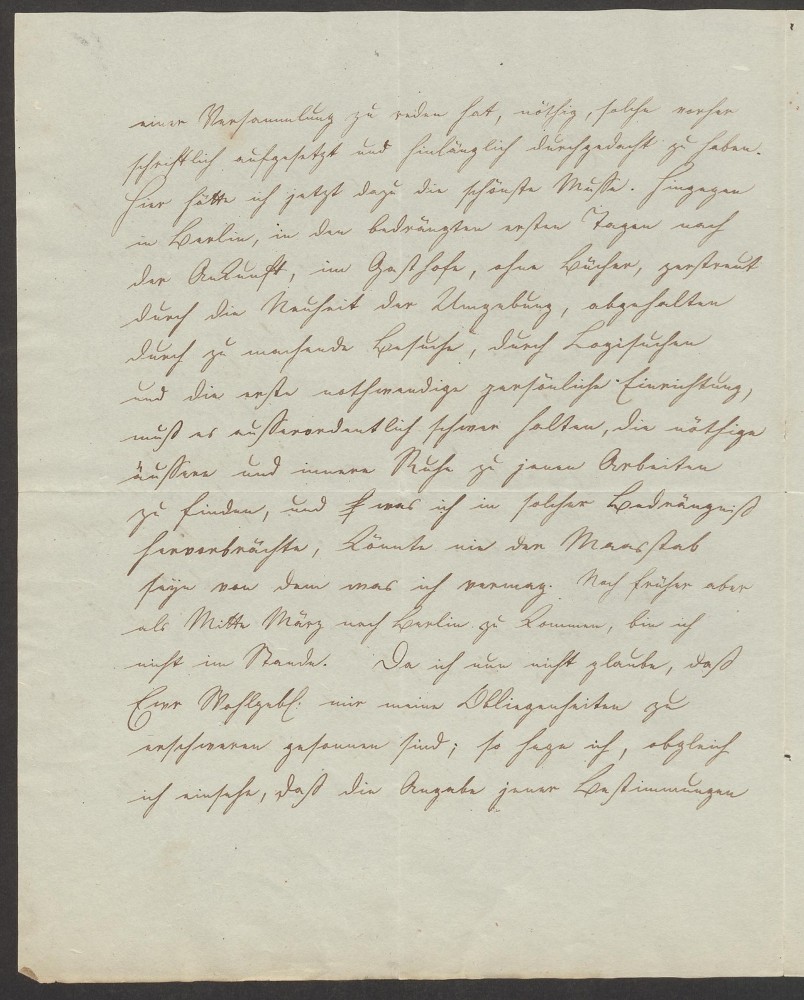 einer Versammlung zu reden hat, nöthig, solche vorher
schriftlich aufgesetzt und hinlänglich durchgedacht zu haben.
Hier hätte ich jetzt dazu die schönste Musse. Hingegen
in Berlin, in den bedrängten ersten Tagen nach
der Ankunft, im Gasthofe, ohne Bücher, zerstreut
durch die Neuheit der Umgebung, abgehalten
durch zu machende Besuche, durch Logissuchen
und die erste nothwendige persönliche Einrichtung,
muß es ausserordentlich schwer halten, die nöthige
äussere und innere Ruhe zu jenen Arbeiten
zu finden, und was ich in solcher Bedrängniß
hervorbrächte, könnte nie der Maasstab
seyn von dem was ich vermag. Noch früher aber
als Mitte März nach Berlin zu kommen, bin ich
nicht im Stande. Da ich nun nicht glaube, daß
Ewr Wohlgeb: mir meine Obliegenheiten zu
erschweren gesonnen sind; so hege ich, obgleich
ich einsehe, daß die Angabe jener Bestimmungen